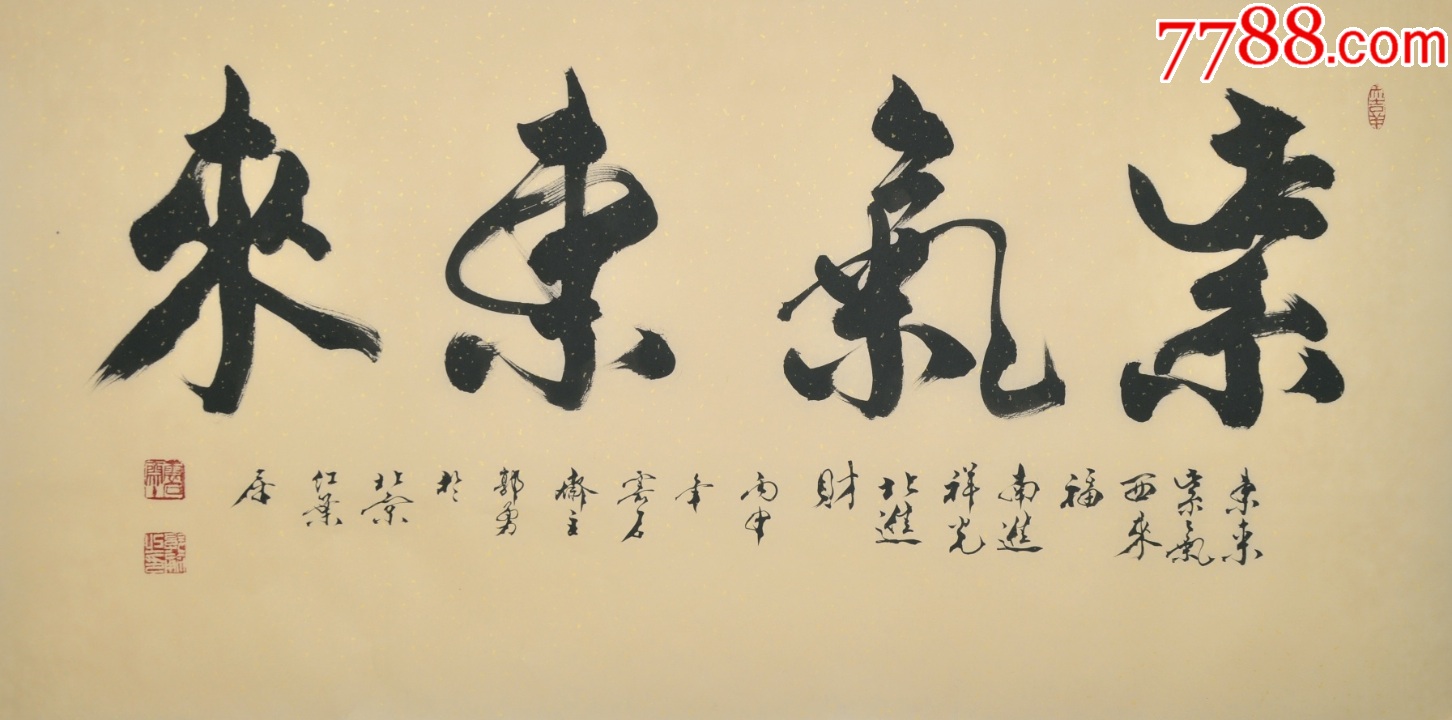 7788.com
紫氣東來
東来
紫氣
西來
福
南進
祥光
北進
財
丙申
年
雲石
齋主
郭勇
於
北京
紅葉
居